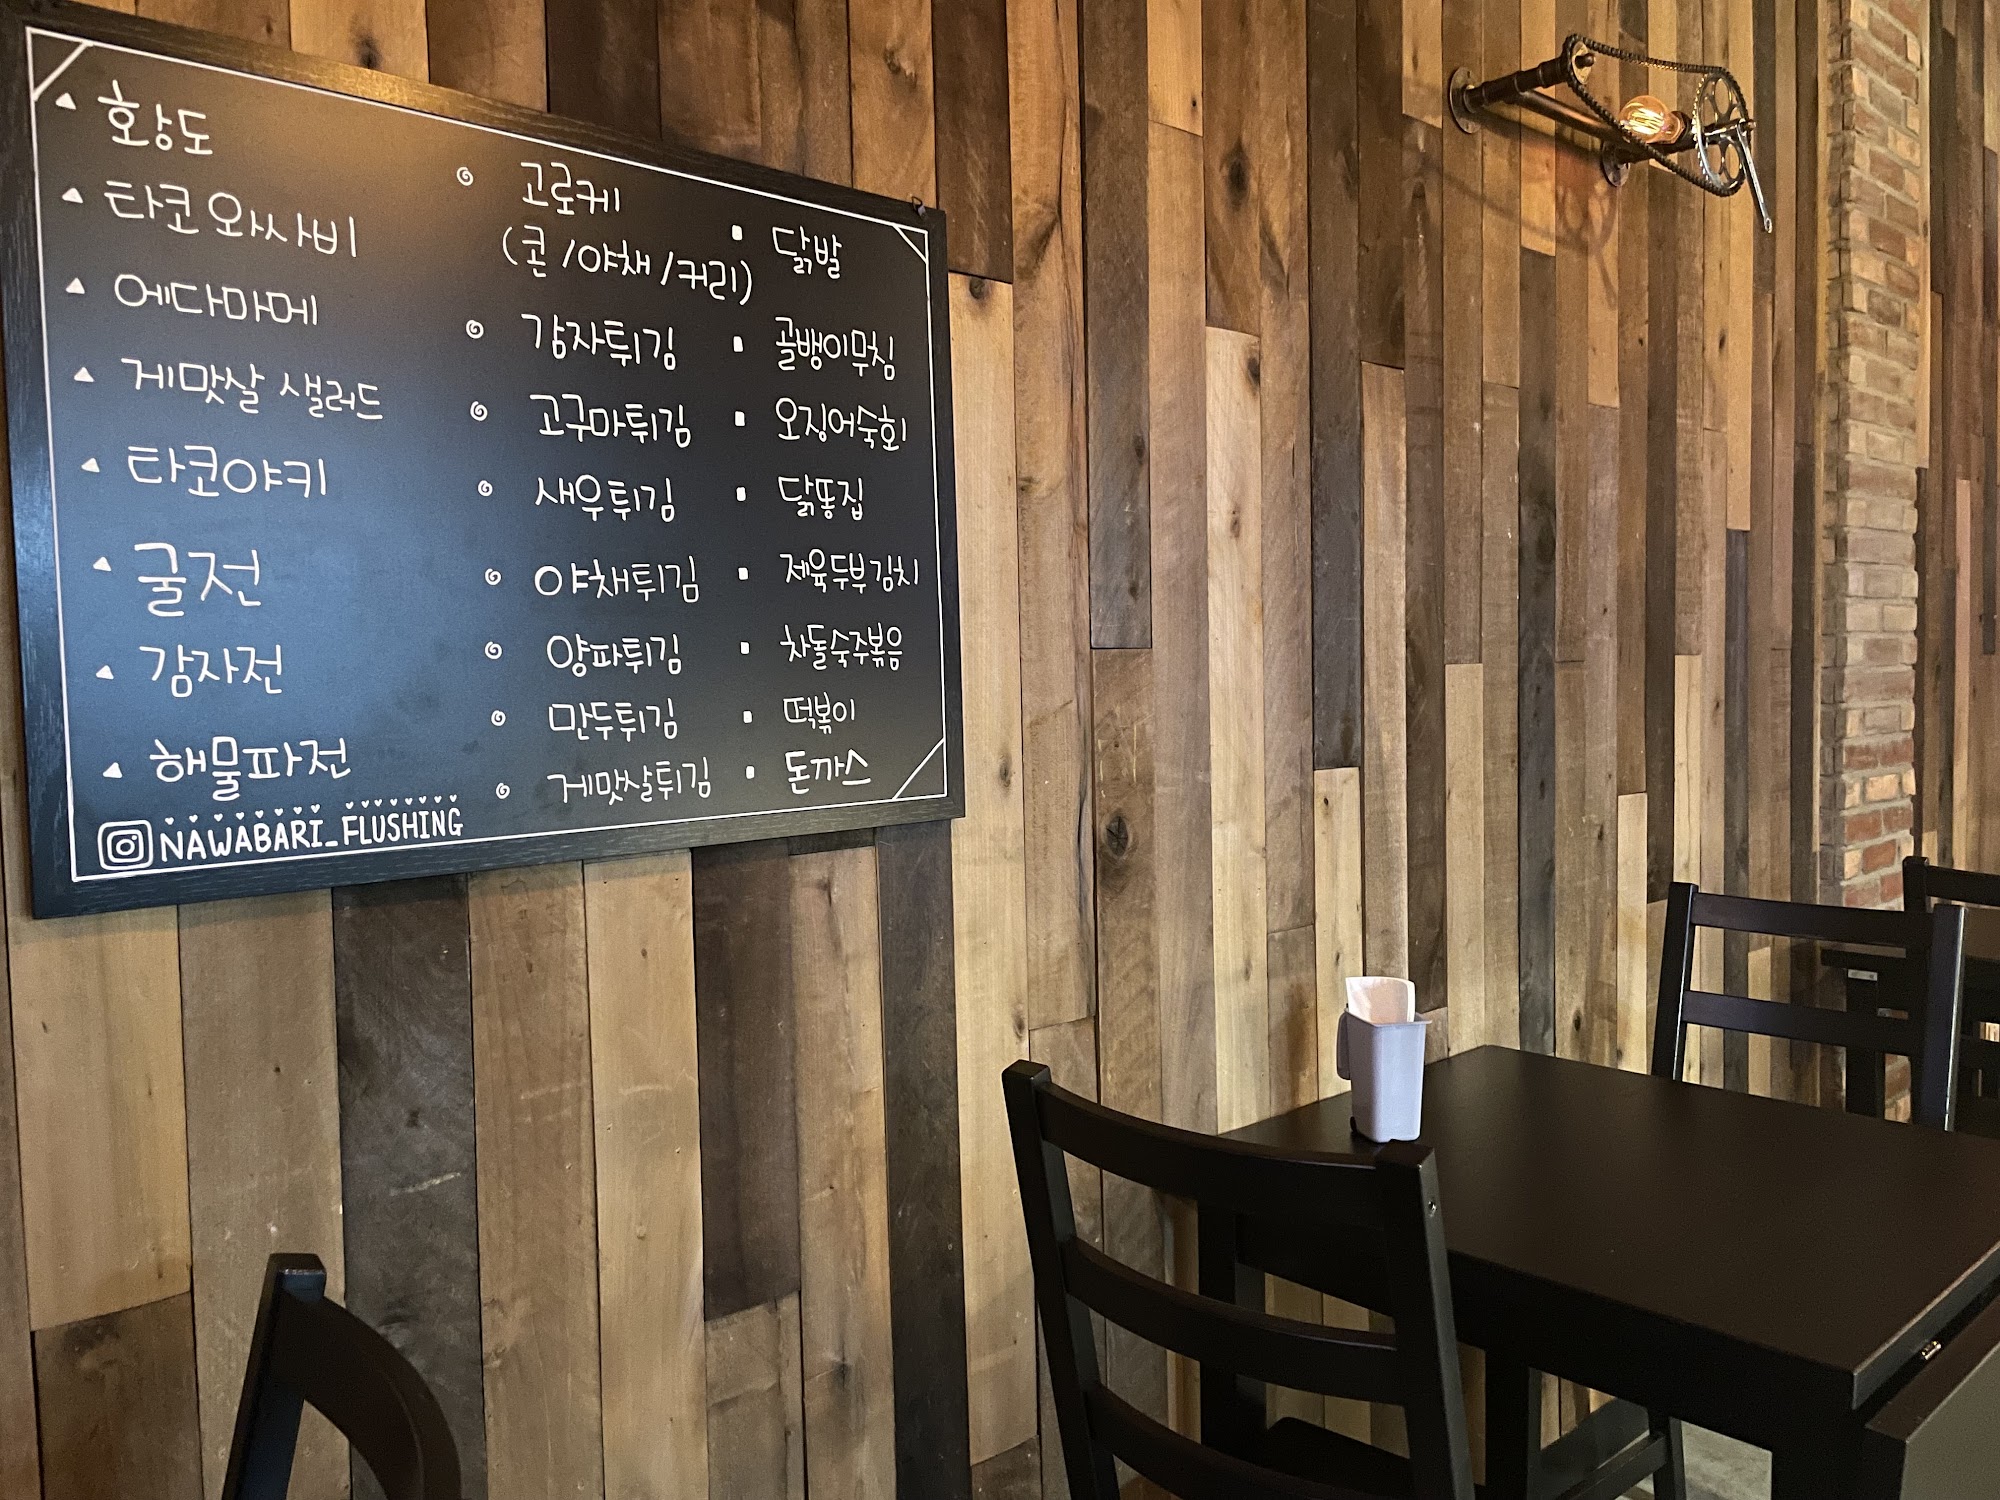 황도
타코 와사비
에다마메
게맛살 샐러드
타코야키
굴전
감자전
해물파전
NAWABARI_FLUSHING
고로케
(콘/야채/커리)
감자튀김
고구마튀김
새우튀김
야채튀김
양파튀김
만두튀김
게맛살튀김
닭발
골뱅이무침
오징어숙회
닭똥집
제육두부김치
차돌숙주볶음
떡볶이
돈까스